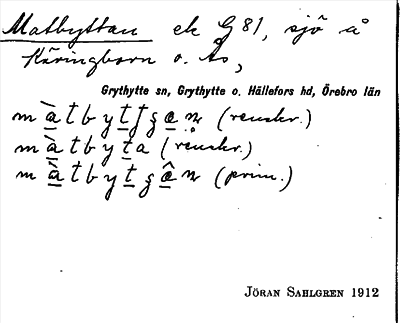 Matbyttan ek G 81, sjö å
Käringborn o. Ås,
Grythytte sn, Grythytte o. Hällefors hd, Örebro län
(renskr.)
m à t b y t a (renskr.)
(prim.)
JÖRAN SAHLGREN 1912